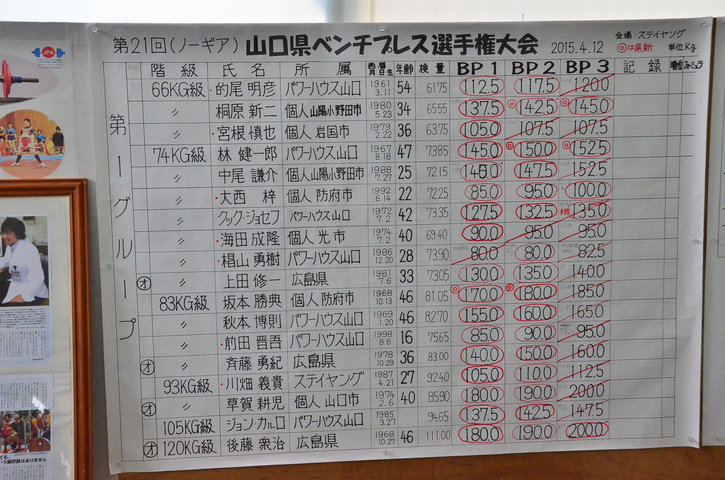 第21回(ノーギア) 山口県ベンチプレス選手権大会 2015.4.12 会場:ステイヤング ◎は県新 単位Kg
階級 氏名 所属 西暦 月日 年齢 検量 BP1 BP2 BP3 記録
第一グループ
66KG級 ・的尾 明彦 パワーハウス山口 1961 3.11 54 6175 112.5 117.5 120.0
〃 桐原 新二 個人 山陽小野田市 1980 5.23 34 6555 137.5 ◎142.5 ◎145.0
〃 ・宮根 慎也 個人 岩国市 1979 2.22 36 6375 105.0 107.5 107.5
74KG級 林 健一郎 パワーハウス山口 1967 8.18 47 7385 145.0 ◎150.0 ◎152.5
〃 中尾 謙介 個人 山陽小野田市 1988 7.27 25 7215 145.0 147.5 152.5
〃 ・大西 梓 個人 防府市 1992 6.14 22 7225 85.0 95.0 100.0
〃 クック・ジョセフ パワーハウス山口 1972 7.2 42 7335 127.5 132.5 135.0
〃 ・海田 成隆 個人 光市 1974 7.2 40 69.40 90.0 95.0 95.0
〃 ・椙山 勇樹 パワーハウス山口 1986 12.20 28 7390 80.0 80.0 82.5
オ 〃 上田 修一 広島県 1981 7.6 33 7305 130.0 135.0 140.0
83KG級 坂本 勝典 個人 防府市 1968 10.13 46 81.05 ◎170.0 ◎180.0 185.0
〃 秋本 博則 パワーハウス山口 1969 1.20 46 8270 155.0 160.0 165.0
〃 ・前田 晋吾 パワーハウス山口 1998 8.6 16 7565 85.0 90.0 95.0
オ 〃 斉藤 勇紀 広島県 1978 10.29 36 83.00 140.0 150.0 160.0
93KG級 ・川畑 義貴 ステイヤング 1987 4.21 27 9240 105.0 110.0 112.5
オ 〃 草賀 耕児 個人 山口市 1974 2.6 40 8590 180.0 190.0 200.0
105KG級 ジョン・カルロ パワーハウス山口 1985 3.27 9465 137.5 142.5 147.5
オ 120KG級 後藤 衆治 広島県 1968 10.27 46 111.00 180.0 190.0 200.0
JPA